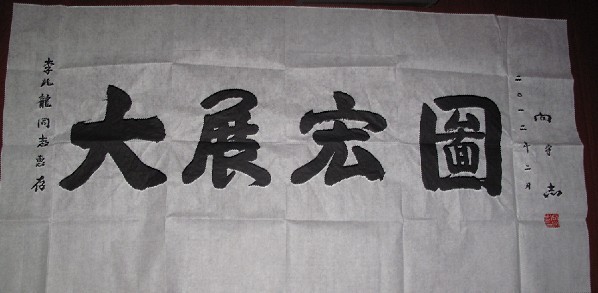 李九龍同志惠存
大展宏圖
二〇一二年二月
向守志